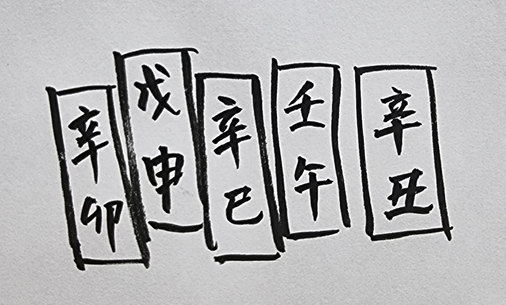 辛卯
戊申
辛巳
壬午
辛丑